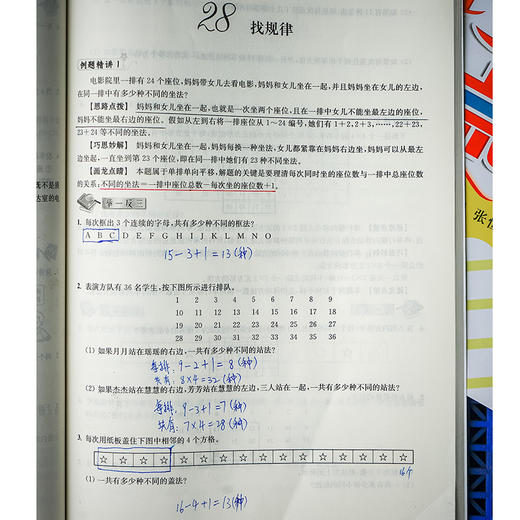 28 找规律
例题精讲 1
电影院里一排有 24 个座位,妈妈带女儿去看电影,妈妈和女儿坐在一起,并且妈妈坐在女儿的左边,
在同一排中有多少种不同的坐法?
【思路点拨】 妈妈和女儿坐在一起,也就是一次坐两个座位,且在一排中女儿不能坐最左边的座位,
妈妈不能坐最右边的座位。假如从左到右将一排座位从 1~24 编号,她们有 1+2,2+3,……,22+23,
23+24 等不同的坐法。
【巧思妙解】 妈妈和女儿坐在一起,妈妈每换一种坐法,女儿都紧靠在妈妈右边坐,妈妈可以从最左
边坐起,一直坐到第 23 个座位,即在同一排中她们有 23 种不同坐法。
【画龙点睛】 本题属于单排单向平移,解题的关键是要理清每次同时坐的座位数与一排中总座位数
的关系:不同的坐法=一排中座位总数-每次坐的座位数+1。
举一反三
1. 每次框出 3 个连续的字母,共有多少种不同的框法?
A B C D E F G H I J K L M N O
15-3+1=13(种)
2. 表演方队有 36 名学生,按下图所示进行排队。
1 2 3 4 5 6 7 8 9
10 11 12 13 14 15 16 17 18
19 20 21 22 23 24 25 26 27
28 29 30 31 32 33 34 35 36
(1) 如果月月站在瑶瑶的右边,一共有多少种不同的站法?
每排:9-2+1=8(种)
共有:8×4=32(种)
(2) 如果杰杰站在慧慧的右边,芳芳站在慧慧的左边,三人站在一起,一共有多少种不同的站法?
每排:9-3+1=7(种)
共有:7×4=28(种)
4. 每次用纸板盖住下图中相邻的 4 个方格。
☆ ☆ ☆ ☆ ☆ ☆ ☆ ☆ ☆ ☆ ☆ ☆ ☆ ☆ ☆ ☆
16个
(1) 一共有多少种不同的盖法?
16-4+1=13(种)